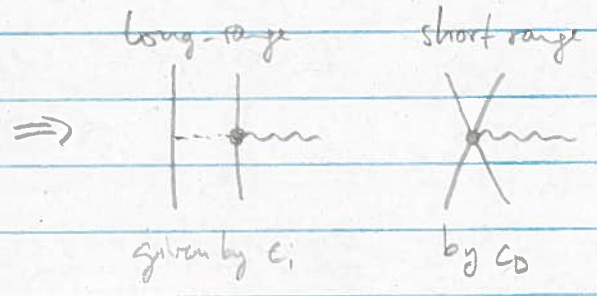 long-range short range
⇒
given by c_i by c_D